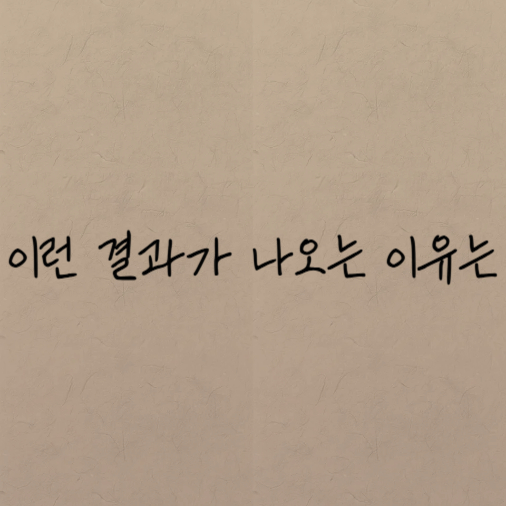 이런 결과가 나오는 이유는